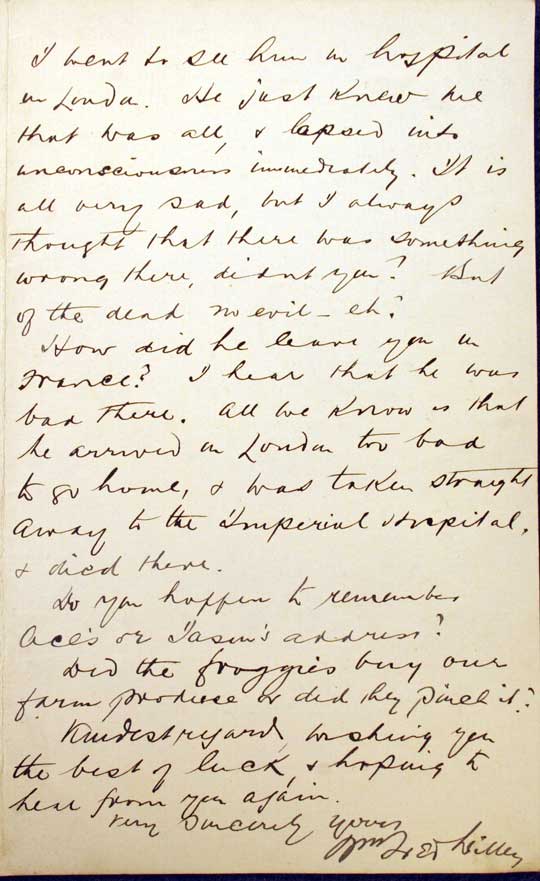 I went to see him in hospital
in London. He just knew me
that was all, & lapsed into
unconsciousness immediately. It is
all very sad, but I always
thought that there was something
wrong there, didnt you? But
of the dead no evil - eh?
How did he leave you in
France? I hear that he was
bad there. All we know is that
he arrived in London too bad
to go home, & was taken straight
away to the Imperial Hospital,
& died there.
Do you happen to remember
or address?
Did the froggies buy our
farm produce or did they pinch it?
Kindest regard, wishing you
the best of luck, & hoping to
hear from you again.
Very Sincerely yours